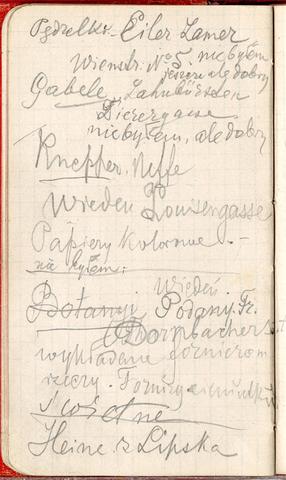 Pędzelki - Eiler Lamer
Wienstr. No 5. nie byłem
jeszcze ale dobry
Gabele, Zahnbürsten
Dierergasse
nie byłem, ale dobry
Knepper. Neffe
Wieden Louisengasse
Papiery kolorowe. -
nie byłem.
Wiedeń.
Botany Podany. Fr.
Dornbacherst
wykładane fornierem
rzeczy. Forniry
świetne
Heine z Lipska